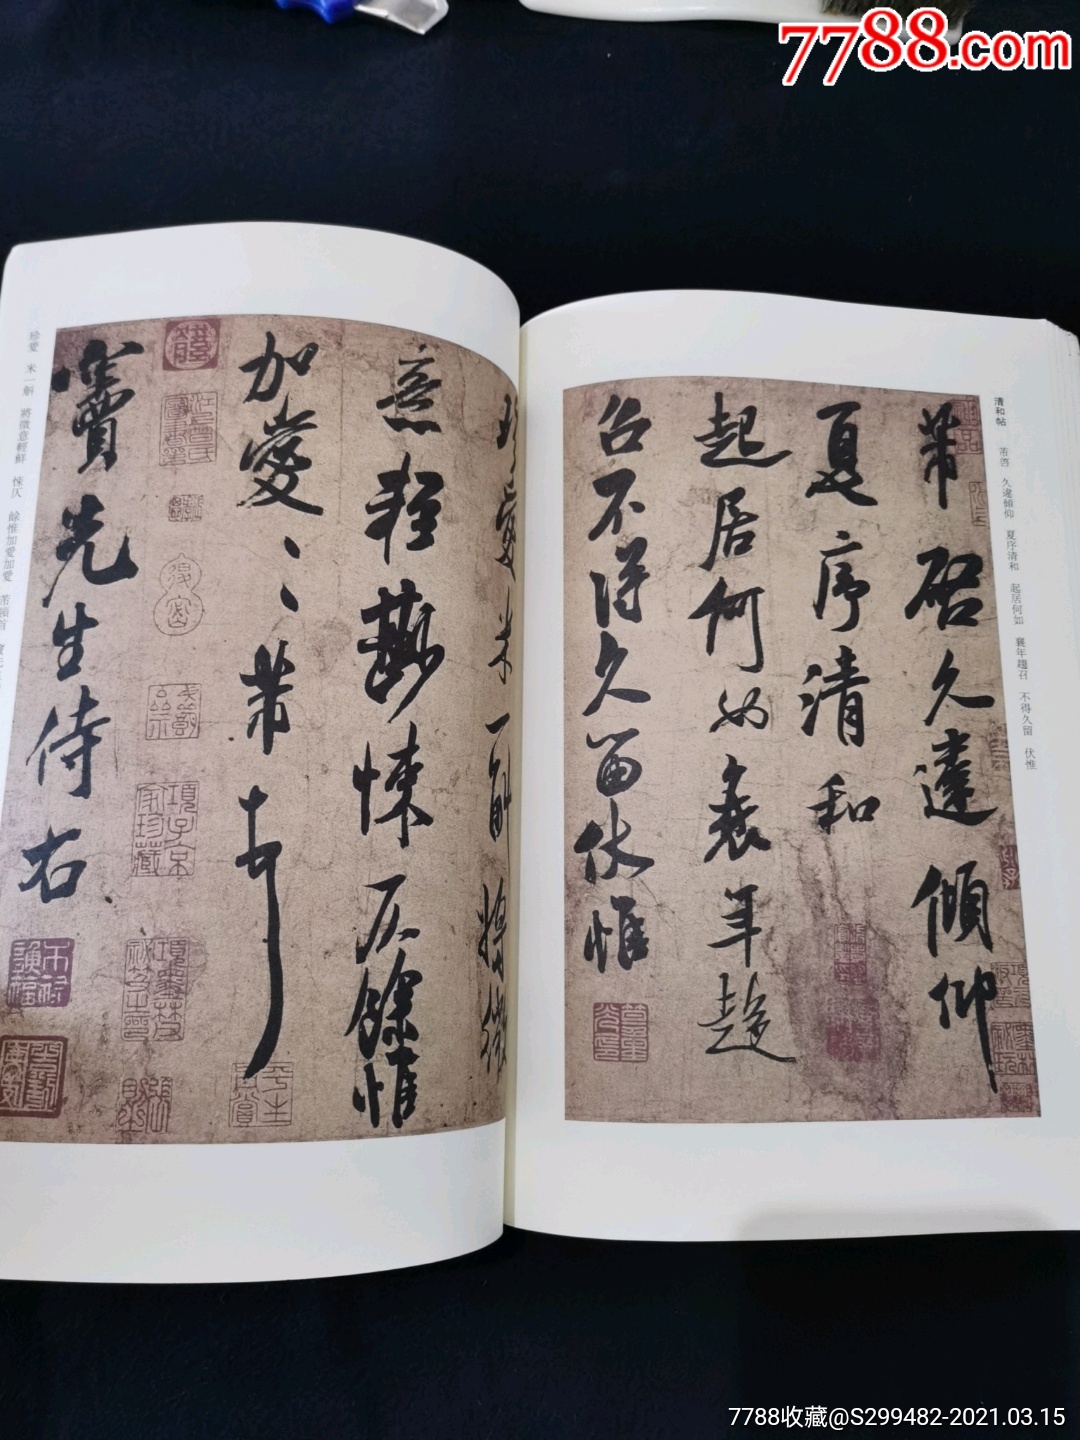 7788.com
清和帖
芾啓 久違傾仰 夏序清和 起居何如 襄年趨召 不得久留 伏惟
芾啓久違傾仰
夏序清和
起居何如衰年趨
召不得久留伏惟
珍愛米一斛將微
意輕鮮悚仄餘惟
加愛〻〻芾頓首
竇先生侍右
珍愛 米一斛 將微意輕鮮 悚仄 餘惟加愛加愛 芾頓首
項子京
家珍藏
平生
真賞
7788收藏@S299482-2021.03.15